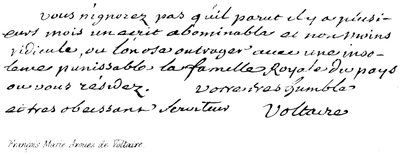 vous n'ignorez pas qu'il parut il y a plusi-
eurs mois un ecrit abominable et non moins
ridicule, ou l'on ose outrager avec une inso-
lence punissable la famille Royale du pays
ou vous résidez. votre tres humble
et tres obeissant serviteur Voltaire
François Marie Arouet de Voltaire